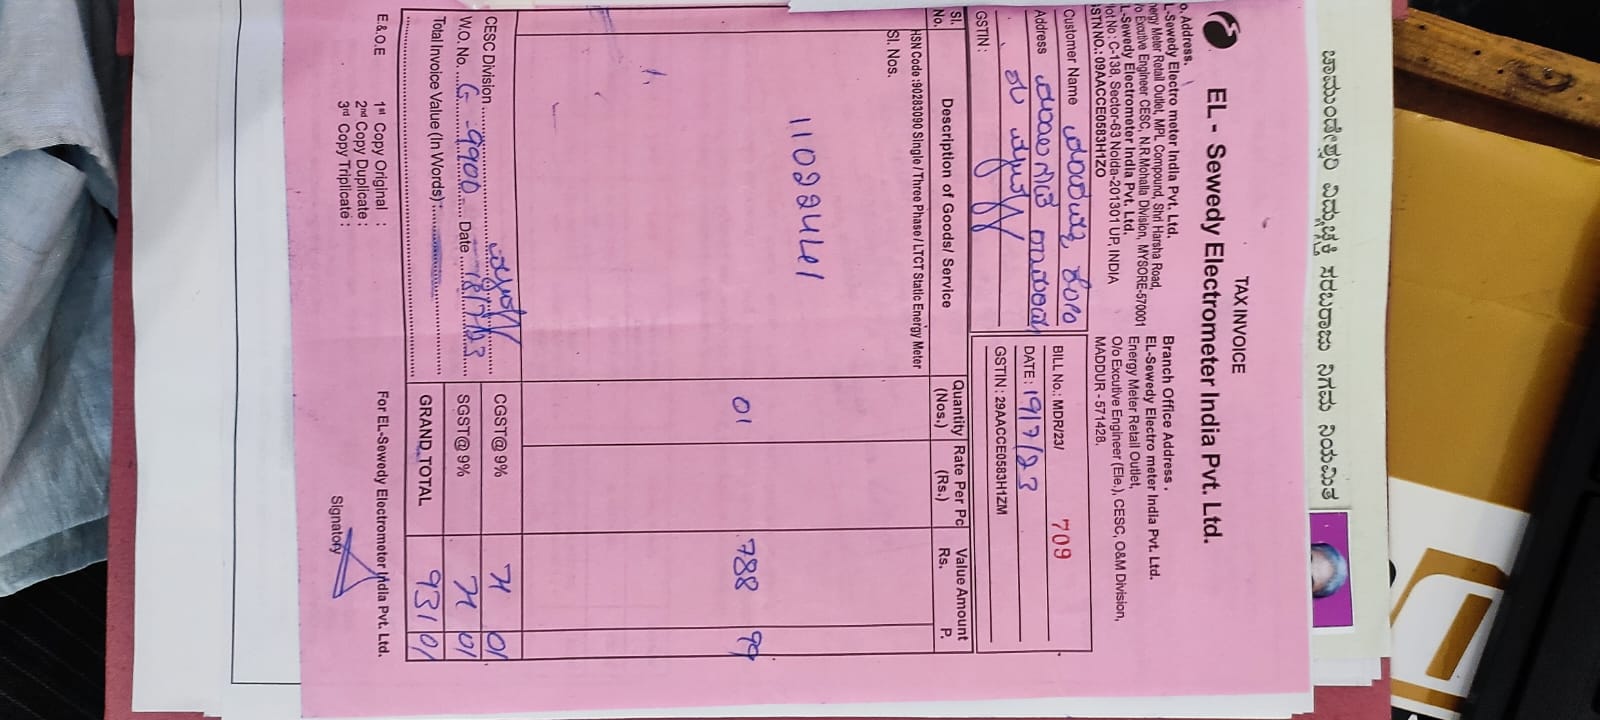 ಚಾಮುಂಡೇಶ್ವರಿ ವಿದ್ಯುಚ್ಛಕ್ತಿ ಸರಬರಾಜು ನಿಗಮ ನಿಯಮಿತ
TAX INVOICE
EL - Sewedy Electrometer India Pvt. Ltd.
o. Address.
L-Sewedy Electro motor India Pvt. Ltd.
nergy Meter Retail Outlet, MPL Compound, Shri Harsha Road,
/o Exutive Engineer CESC, N.R.Mohalla Division, MYSORE-570001
L-Sewedy Electrometer India Pvt. Ltd.
lot No : C-138, Sector-63 Noida-201301 UP, INDIA
STN NO.: 09AACCE0583H1ZO
Branch Office Address .
EL-Sewedy Electro meter India Pvt. Ltd.
Energy Meter Retail Outlet,
O/o Excutive Engineer (Ele.), CESC, O&M Division,
MADDUR - 571428.
Customer Name
Address
GSTIN :
BILL No.: MDR/23/ 709
DATE : 19/7/23
GSTIN : 29AACCE0583H1ZM
Sl. No. Description of Goods/ Service Quantity (Nos.) Rate Per Pc (Rs.) Value Amount Rs. P.
HSN Code :90283090 Single / Three Phase / LTCT Static Energy Meter
Sl. Nos.
01 788 99
CESC Division
W.O. No. G-9900 Date 18/7/23
Total Invoice Value (In Words) :
CGST@ 9% 71 01
SGST@ 9% 71 01
GRAND TOTAL 931 01
E.&.O.E
1st Copy Original :
2nd Copy Duplicate :
3rd Copy Triplicate :
For EL-Sewedy Electrometer India Pvt. Ltd.
Signatory